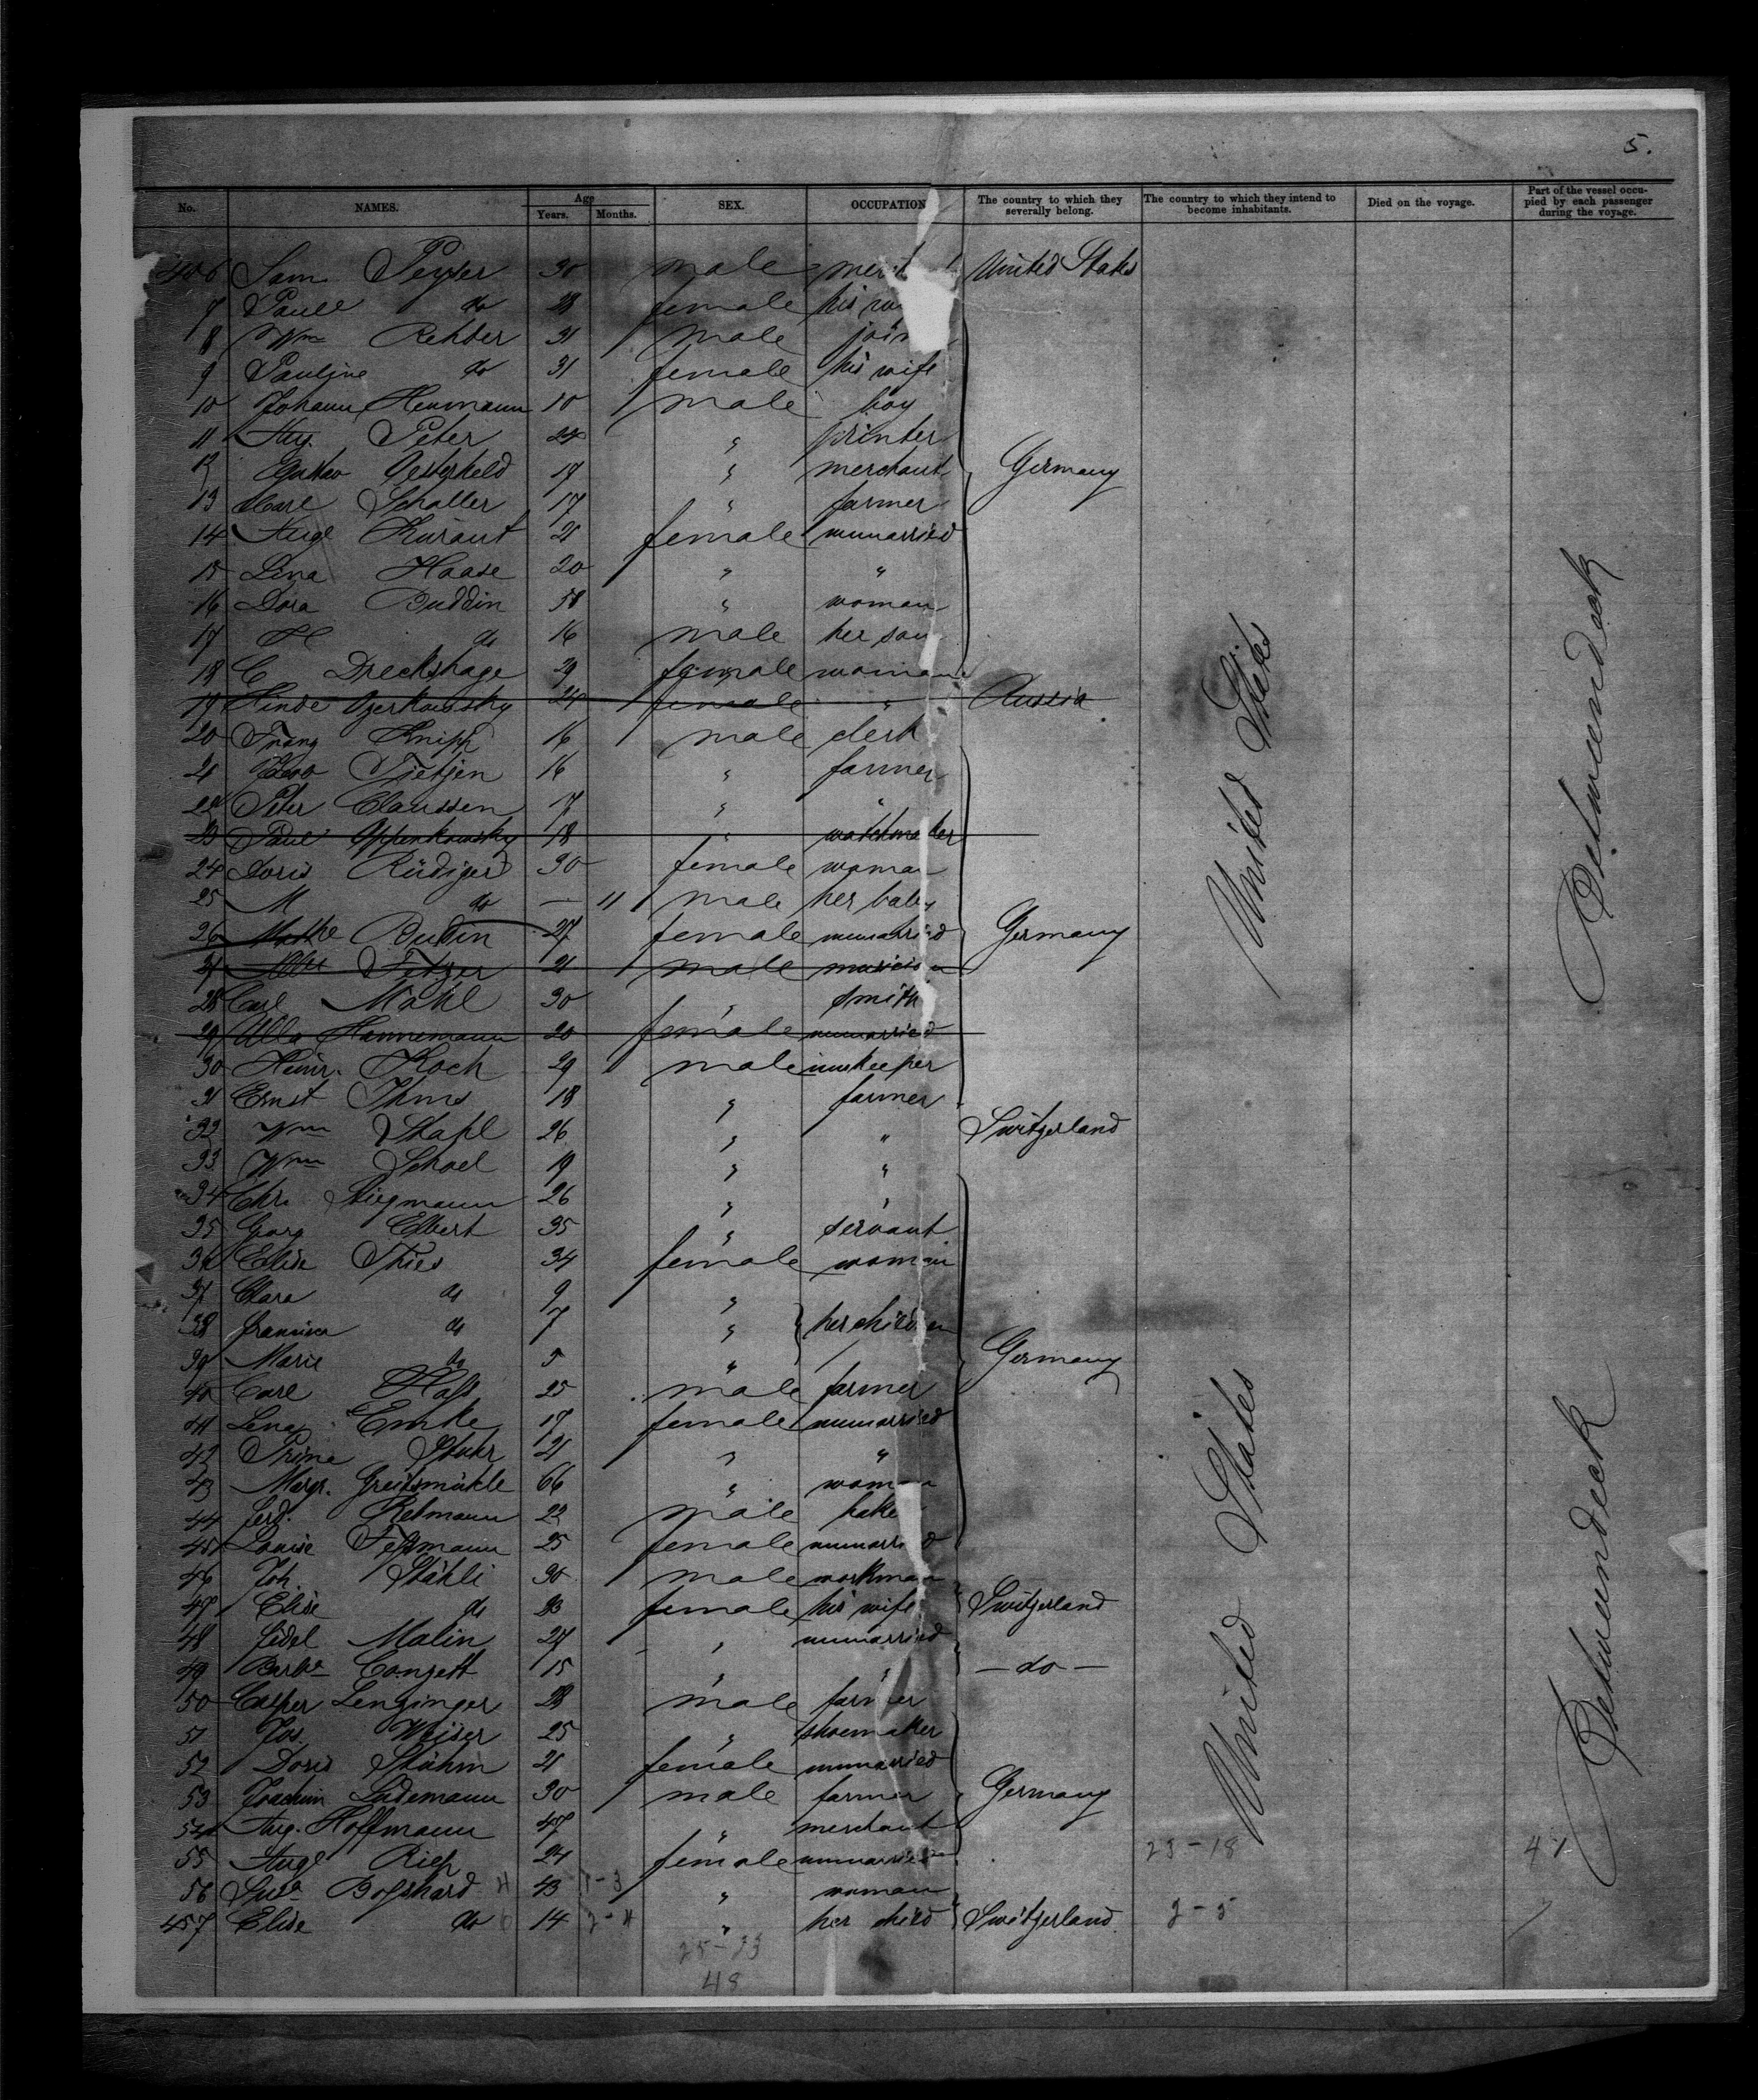 5.
No. NAMES. Age Years. Months. SEX. OCCUPATION The country to which they severally belong. The country to which they intend to become inhabitants. Died on the voyage. Part of the vessel occupied by each passenger during the voyage.
406 Sam Peyser 30 male United States
7 Paul do 28 female his
8 Wm Rehder 31 male join
9 Pauline do 31 female his wife
10 Johann Heumann 10 male boy
11 Peter 24 " printer
12 Gustav Oesterheld 19 " merchant Germany
13 Carl Schaller 17 " farmer
14 Aug Kurant 21 female unmarried
15 Lina Haase 20 " "
16 Dora Buddin 58 " woman
17 H do 16 male her son
18 C Dreckshage 29 female woman
19 Hinde Ozerkowsky 24 female " Russia
20 Franz Knipp 16 male clerk
21 Tietjen 16 " farmer
22 Peter Claussen 17 " "
23 Paul Oppenkowsky 18 " watchmaker
24 Doris Rüdiger 30 female woman
25 M do — 11 male her baby
26 Budin 27 female unmarried Germany
27 Fetzer 21 male musician
28 Carl Mahl 30 " smith
29 Hannemann 20 female unmarried
30 Heinr. Koch 29 male innkeeper
31 Ernst Thms 18 " farmer
32 Wm Stapl 26 " " Switzerland
33 Wm Schoel 19 " "
34 Chr. Stiegmann 26 " "
35 Georg Elbert 35 " servant
36 Elise Thies 34 female woman
37 Clara do 9 "
38 do 7 " her children
39 Marie do 5 " Germany
40 Carl Hass 25 male farmer
41 Lena Emke 17 female unmarried
42 Trina Stuhr 21 " "
43 Margr. Greitsmühle 66 " woman
44 Ferd. Rehmann 22 male bake
45 Louise Tessmann 25 female unmarried
46 Joh. Stähli 30 male workman
47 Elise do 23 female his wife Switzerland
48 Fidel Malin 27 " unmarried
49 Barba Conzett 15 " " — do —
50 Casper Lenzinger 28 male farmer
51 Jos. Weiser 25 " shoemaker
52 Doris Stühm 21 female unmarried
53 Joachim Lüdemann 30 male farmer Germany
54 Aug. Hoffmann 47 " merchant
55 Aug Riep 24 female unmarried 23-18 41
56 Susa Bosshard 43 " woman
457 Elise do 14 " her child Switzerland 2-5
25-23
48
United States
United States
Betweendeck
Betweendeck